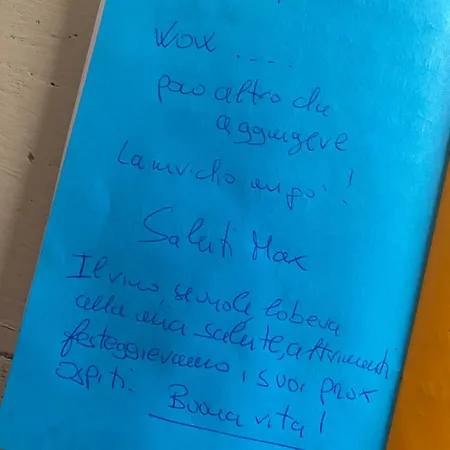 Wow ....
poco altro da
aggiungere
La invidio un po'!
Saluti Max
Il vino, se vuole lo beva
alla mia salute, altrimenti
festeggieranno i suoi prox
ospiti.
Buona vita!